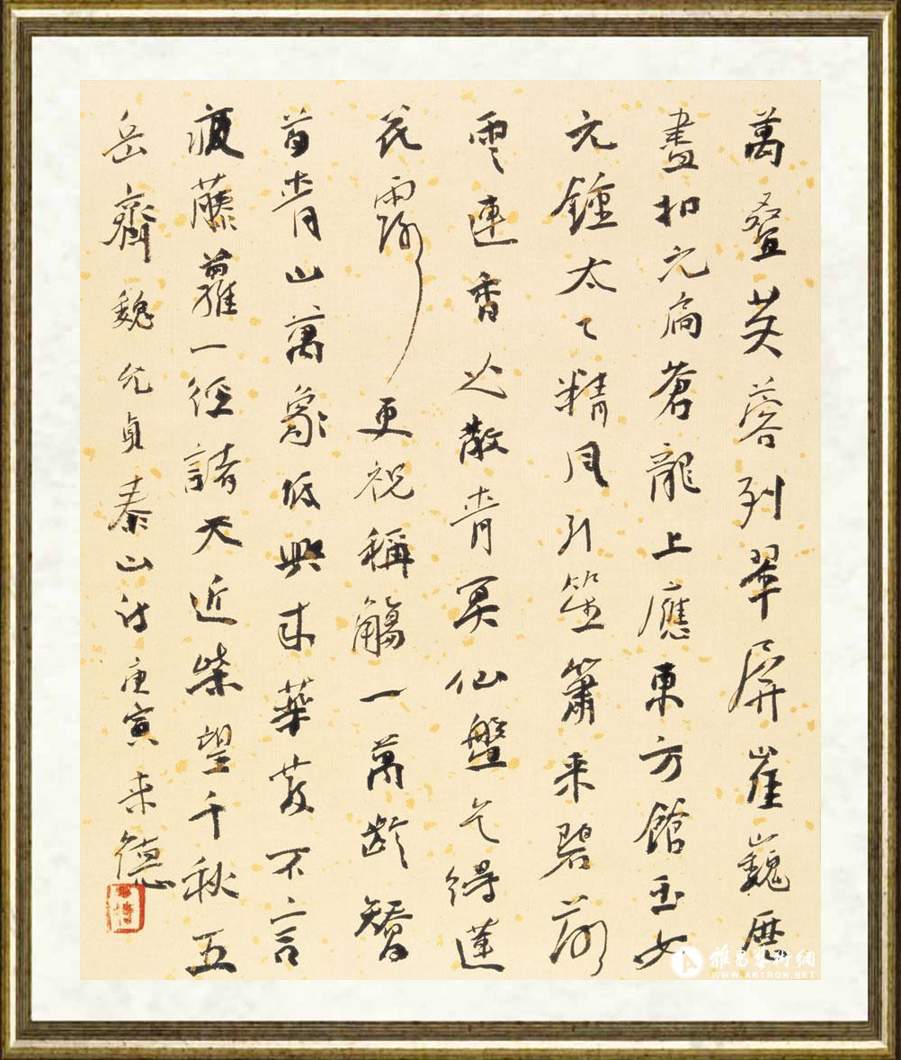 萬疊芙蓉列翠屏崔巍歷
盡扣元扃蒼龍上應東方館玉女
元鍾太乙精月引笙簫來碧落
雲連香火散青冥仙盤乞得蓮
花露更祝稱觴一萬齡矯
首青山萬象低興來華髮不言
疲藤蘿一徑諸天近柴望千秋五
岳齊魏允貞泰山詩庚寅來德
雅昌藝術網
WWW.ARTRON.NET